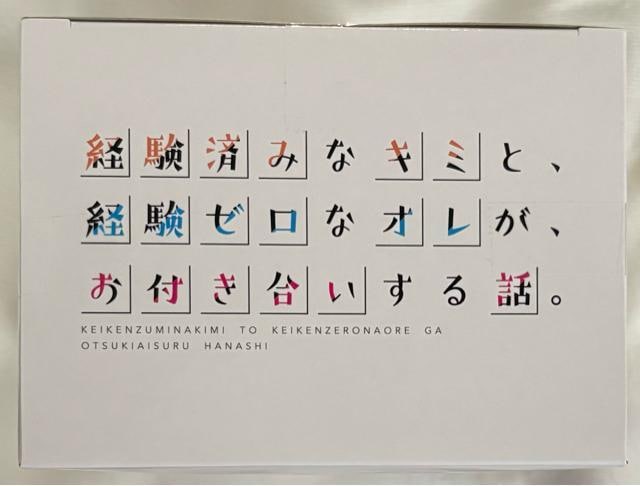 経験済みなキミと、
経験ゼロなオレが、
お付き合いする話。
KEIKENZUMINAKIMI TO KEIKENZERONAORE GA
OTSUKIAISURU HANASHI